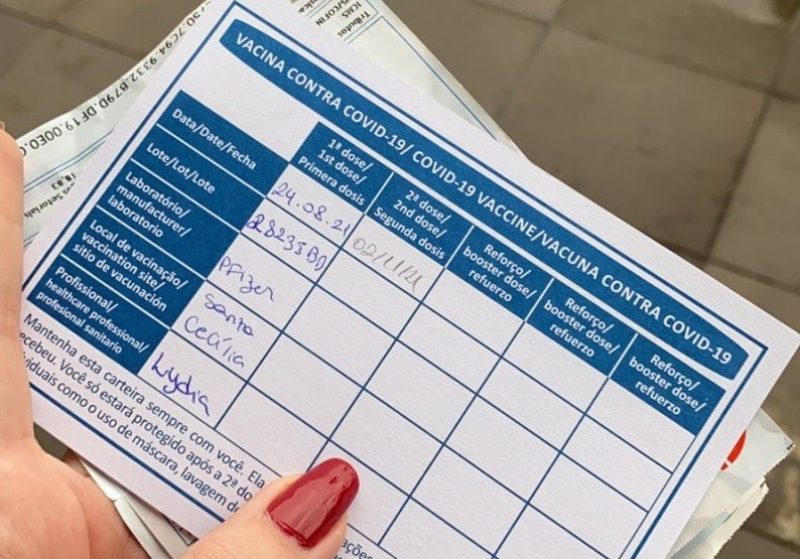 Tributos
ICMS
VACINA CONTRA COVID-19/ COVID-19 VACCINE/VACUNA CONTRA COVID-19
Data/Date/Fecha
Lote/Lot/Lote
Laboratório/
manufacturer/
laboratorio
Local de vacinação/
vaccination site/
sitio de vacunación
Profissional/
healthcare professional/
profesional sanitario
1ª dose/
1st dose/
Primera dosis
24.08.21
Pfizer
Santa
Cecília
Lydia
2ª dose/
2nd dose/
Segunda dosis
02/11/21
Reforço/
booster dose/
refuerzo
Reforço/
booster dose/
refuerzo
Reforço/
booster dose/
refuerzo
Mantenha esta carteira sempre com você. Ela
recebeu. Você só estará protegido após a 2ª do
ividuais como o uso de máscara, lavagem d